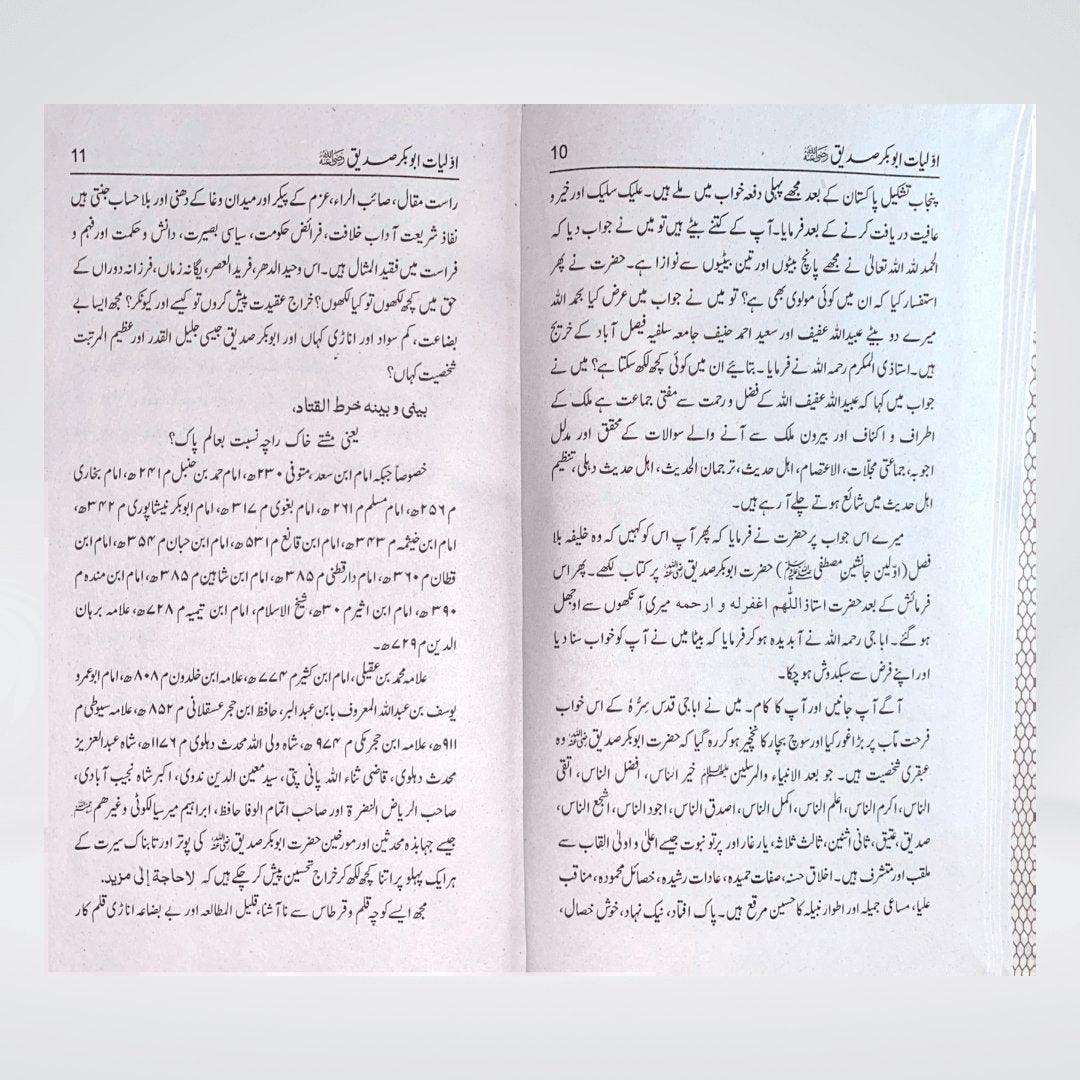 اوّلیات ابوبکر صدیق رضی اللہ عنہ
10
پنجاب تشکیل پاکستان کے بعد مجھے پہلی دفعہ خواب میں ملے ہیں۔ علیک سلیک اور خیر و
عافیت دریافت کرنے کے بعد فرمایا۔ آپ کے کتنے بیٹے ہیں تو میں نے جواب دیا کہ
الحمد للہ اللہ تعالیٰ نے مجھے پانچ بیٹوں اور تین بیٹیوں سے نوازا ہے۔ حضرت نے پھر
استفسار کیا کہ ان میں کوئی مولوی بھی ہے؟ تو میں نے جواب میں عرض کیا بحمد اللہ
میرے دو بیٹے عبیداللہ عفیف اور سعید احمد حنیف جامعہ سلفیہ فیصل آباد کے خریج
ہیں۔ استاذی المکرم رحمہ اللہ نے فرمایا۔ بتائیے ان میں کوئی کچھ لکھ سکتا ہے؟ میں نے
جواب میں کہا کہ عبیداللہ عفیف اللہ کے فضل و رحمت سے مفتی جماعت ہے ملک کے
اطراف و اکناف اور بیرون ملک سے آنے والے سوالات کے محقق اور مدلل
اجوبہ، جماعتی مجلّات، الاعتصام، اہل حدیث، ترجمان الحدیث، اہل حدیث دہلی، تنظیم
اہل حدیث میں شائع ہوتے چلے آ رہے ہیں۔
میرے اس جواب پر حضرت نے فرمایا کہ پھر آپ اس کو کہیں کہ وہ خلیفہ بلا
فصل (اوّلین جانشین مصطفی ﷺ) حضرت ابوبکر صدیق رضی اللہ عنہ پر کتاب لکھے۔ پھر اس
فرمائش کے بعد حضرت استاذ اللّٰھم اغفرلہ و ارحمه میری آنکھوں سے اوجھل
ہو گئے۔ اباجی رحمہ اللہ نے آبدیدہ ہو کر فرمایا کہ بیٹا میں نے آپ کو خواب سنا دیا
اور اپنے فرض سے سبکدوش ہو چکا۔
آگے آپ جانیں اور آپ کا کام۔ میں نے اباجی قدس سرُّہٗ کے اس خواب
فرحت آب پر بڑا غور کیا اور سوچ بچار کا نچیر ہو کر رہ گیا کہ حضرت ابوبکر صدیق رضی اللہ عنہ وہ
عبقری شخصیت ہیں۔ جو بعد الانبیاء والمرسلین خیر الناس، افضل الناس، اتقی
الناس، اکرم الناس، اعلم الناس، اکمل الناس، اصدق الناس، اجود الناس، اشجع الناس،
صدیق، عتیق، ثانی اثنین، ثالث ثلاثہ، یار غار اور پرتو نبوت جیسے اعلیٰ و اولیٰ القاب سے
ملقب اور متشرف ہیں۔ اخلاق حسنہ، صفات حمیدہ، عادات رشیدہ، خصائل محمودہ، مناقب
علیا، مساعی جمیلہ اور اطوار نبیلہ کا حسین مرقع ہیں۔ پاک افتاد، نیک نہاد، خوش خصال،
اوّلیات ابوبکر صدیق رضی اللہ عنہ
11
راست مقال، صائب الراء، عزم کے پیکر اور میدان وغا کے دھنی اور بلا حساب جنتی ہیں
نفاذ شریعت آداب خلافت، فرائض حکومت، سیاسی بصیرت، دانش و حکمت اور فہم و
فراست میں فقید المثال ہیں۔ اس وحید الدھر، فرید العصر، یگانہ زماں، فرزانہ دوراں کے
حق میں کچھ لکھوں تو کیا لکھوں؟ خراج عقیدت پیش کروں تو کیسے اور کیونکر؟ مجھ ایسا بے
بضاعت، کم سواد اور اناڑی کہاں اور ابوبکر صدیق جیسی جلیل القدر اور عظیم المرتبت
شخصیت کہاں؟
بینی و بینه خرط القتاد،
یعنی مشتے خاک راچہ نسبت بعالم پاک؟
خصوصاً جبکہ امام ابن سعد، متوفی ۲۳۰ھ، امام محمد بن حنبل م ۲۴۱ھ، امام بخاری
م ۲۵۶ھ، امام مسلم م ۲۶۱ھ، امام بغوی م ۳۱۷ھ، امام ابوبکر نیشاپوری م ۳۴۲ھ،
امام ابن خیثمہ م ۳۴۳ھ، امام ابن قانع م ۵۳۱ھ، امام ابن حبان م ۳۵۴ھ، امام ابن
قطان م ۳۶۰ھ، امام دارقطنی م ۳۸۵ھ، امام ابن شاہین م ۳۸۵ھ، امام ابن مندہ م
۳۹۰ھ، امام ابن اثیر م ۳۰ھ، شیخ الاسلام، امام ابن تیمیہ م ۷۲۸ھ، علامہ برہان
الدین م ۷۲۹ھ۔
علامہ محمد بن عقیلی، امام ابن کثیر م ۷۷۴ھ، علامہ ابن خلدون م ۸۰۸ھ، امام ابوعمرو
یوسف بن عبداللہ المعروف بابن عبدالبر، حافظ ابن حجر عسقلانی م ۸۵۲ھ، علامہ سیوطی م
۹۱۱ھ، علامہ ابن حجر مکی م ۹۷۴ھ، شاہ ولی اللہ محدث دہلوی م ۱۱۷۶ھ، شاہ عبدالعزیز
محدث دہلوی، قاضی ثناء اللہ پانی پتی، سید معین الدین ندوی، اکبر شاہ نجیب آبادی،
صاحب الریاض النضرۃ اور صاحب اتمام الوفا حافظ، ابراہیم میر سیالکوٹی وغیرھم
جیسے جہابذہ محدثین اور مورخین حضرت ابوبکر صدیق رضی اللہ عنہ کی پوتر اور تابناک سیرت کے
ہر ایک پہلو پر اتنا کچھ لکھ کر خراج تحسین پیش کر چکے ہیں کہ لا حاجة إلی مزید.
مجھ ایسے کوچہ قلم و قرطاس سے نا آشنا، قلیل المطالعہ اور بے بضاعہ اناڑی قلم کار